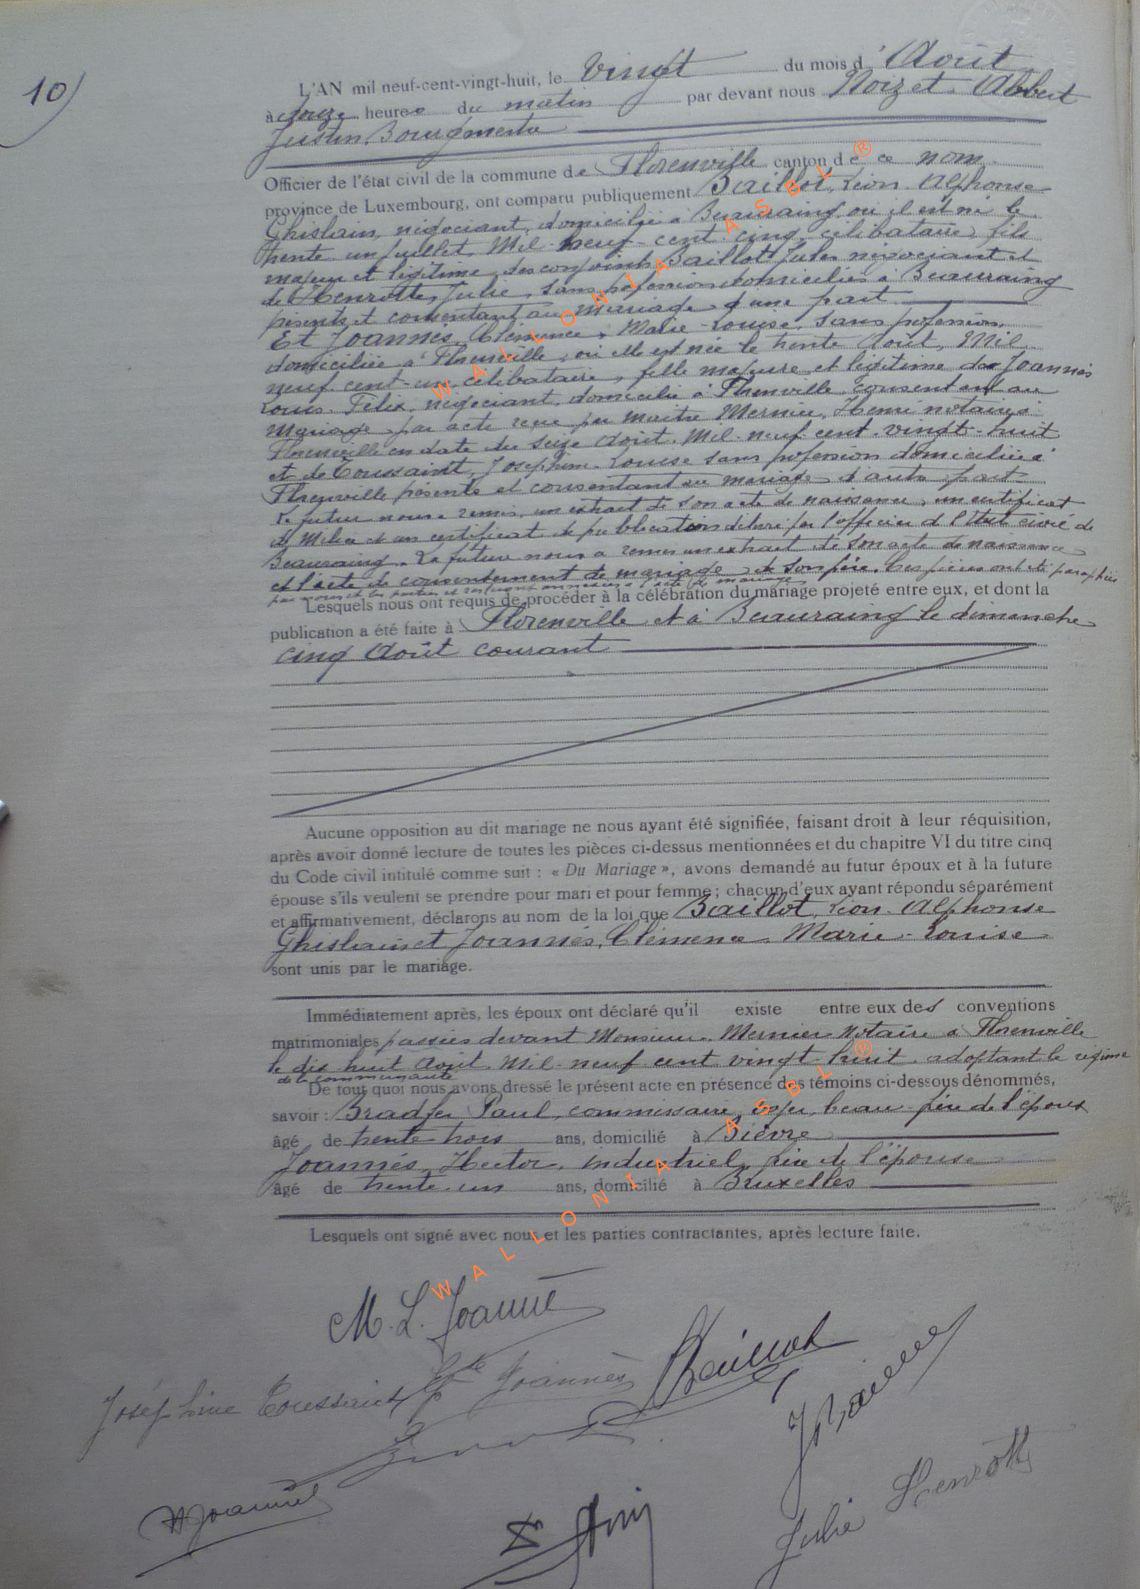 10)
L'AN mil neuf-cent-vingt-huit, le vingt du mois d'Août
à onze heures du matin par devant nous Noizet Albert
Justin, Bourgmestre
Officier de l'état civil de la commune de Florenville canton de ce nom
province de Luxembourg, ont comparu publiquement Baillot, Léon Alphonse
Ghislain, négociant, domicilié à Beauraing où il est né le
trente un juillet Mil neuf-cent cinq, célibataire, fils
majeur et légitime des conjoints Baillot Jules négociant et
de Henrotte, Julie, sans profession domiciliés à Beauraing
présents et consentant au mariage d'une part
Et Joannès, Clémence, Marie-Louise, sans profession
domiciliée à Florenville, où elle est née le trente Août, Mil
neuf cent-un, célibataire, fille majeure et légitime de Joannès
Louis Félix, négociant, domicilié à Florenville consentant au
mariage par acte reçu par maître Mernier, Henri notaire à
Florenville en date du seize Août, Mil-neuf cent-vingt-huit
et de Toussaint, Joséphine-Louise sans profession domiciliée à
Florenville présente et consentant au mariage d'autre part
Le futur nous a remis un extrait de son acte de naissance, un certificat
de Milice et un certificat de publication délivré par l'officier de l'Etat civil de
Beauraing. La future nous a remis un extrait de son acte de naissance
et l'acte de consentement de mariage de son père. Ces pièces ont été paraphées
par nous et les parties et resteront annexées à l'acte de mariage
Lesquels nous ont requis de procéder à la célébration du mariage projeté entre eux, et dont la
publication a été faite à Florenville et à Beauraing le dimanche
cinq Août courant
Aucune opposition au dit mariage ne nous ayant été signifiée, faisant droit à leur réquisition,
après avoir donné lecture de toutes les pièces ci-dessus mentionnées et du chapitre VI du titre cinq
du Code civil intitulé comme suit : « Du Mariage », avons demandé au futur époux et à la future
épouse s'ils veulent se prendre pour mari et pour femme ; chacun d'eux ayant répondu séparément
et affirmativement, déclarons au nom de la loi que Baillot, Léon-Alphonse
Ghislain et Joannès, Clémence Marie-Louise
sont unis par le mariage.
Immédiatement après, les époux ont déclaré qu'il existe entre eux des conventions
matrimoniales passées devant Monsieur Mernier Notaire à Florenville
le dix huit Août Mil-neuf cent vingt-huit adoptant le régime
de la communauté
De tout quoi nous avons dressé le présent acte en présence des témoins ci-dessous dénommés,
savoir : Bradfer Paul, commissaire voyer, beau-frère de l'époux
âgé de trente trois ans, domicilié à Bièvre
Joannès, Hector, industriel, frère de l'épouse
âgé de trente-un ans, domicilié à Bruxelles
Lesquels ont signé avec nous et les parties contractantes, après lecture faite.
M. L. Joannès
Joséphine Toussaint Joannès Baillot
H Joannès
Julie Henrotte
WALLONIA ASBL ®
WALLONIA ASBL ®